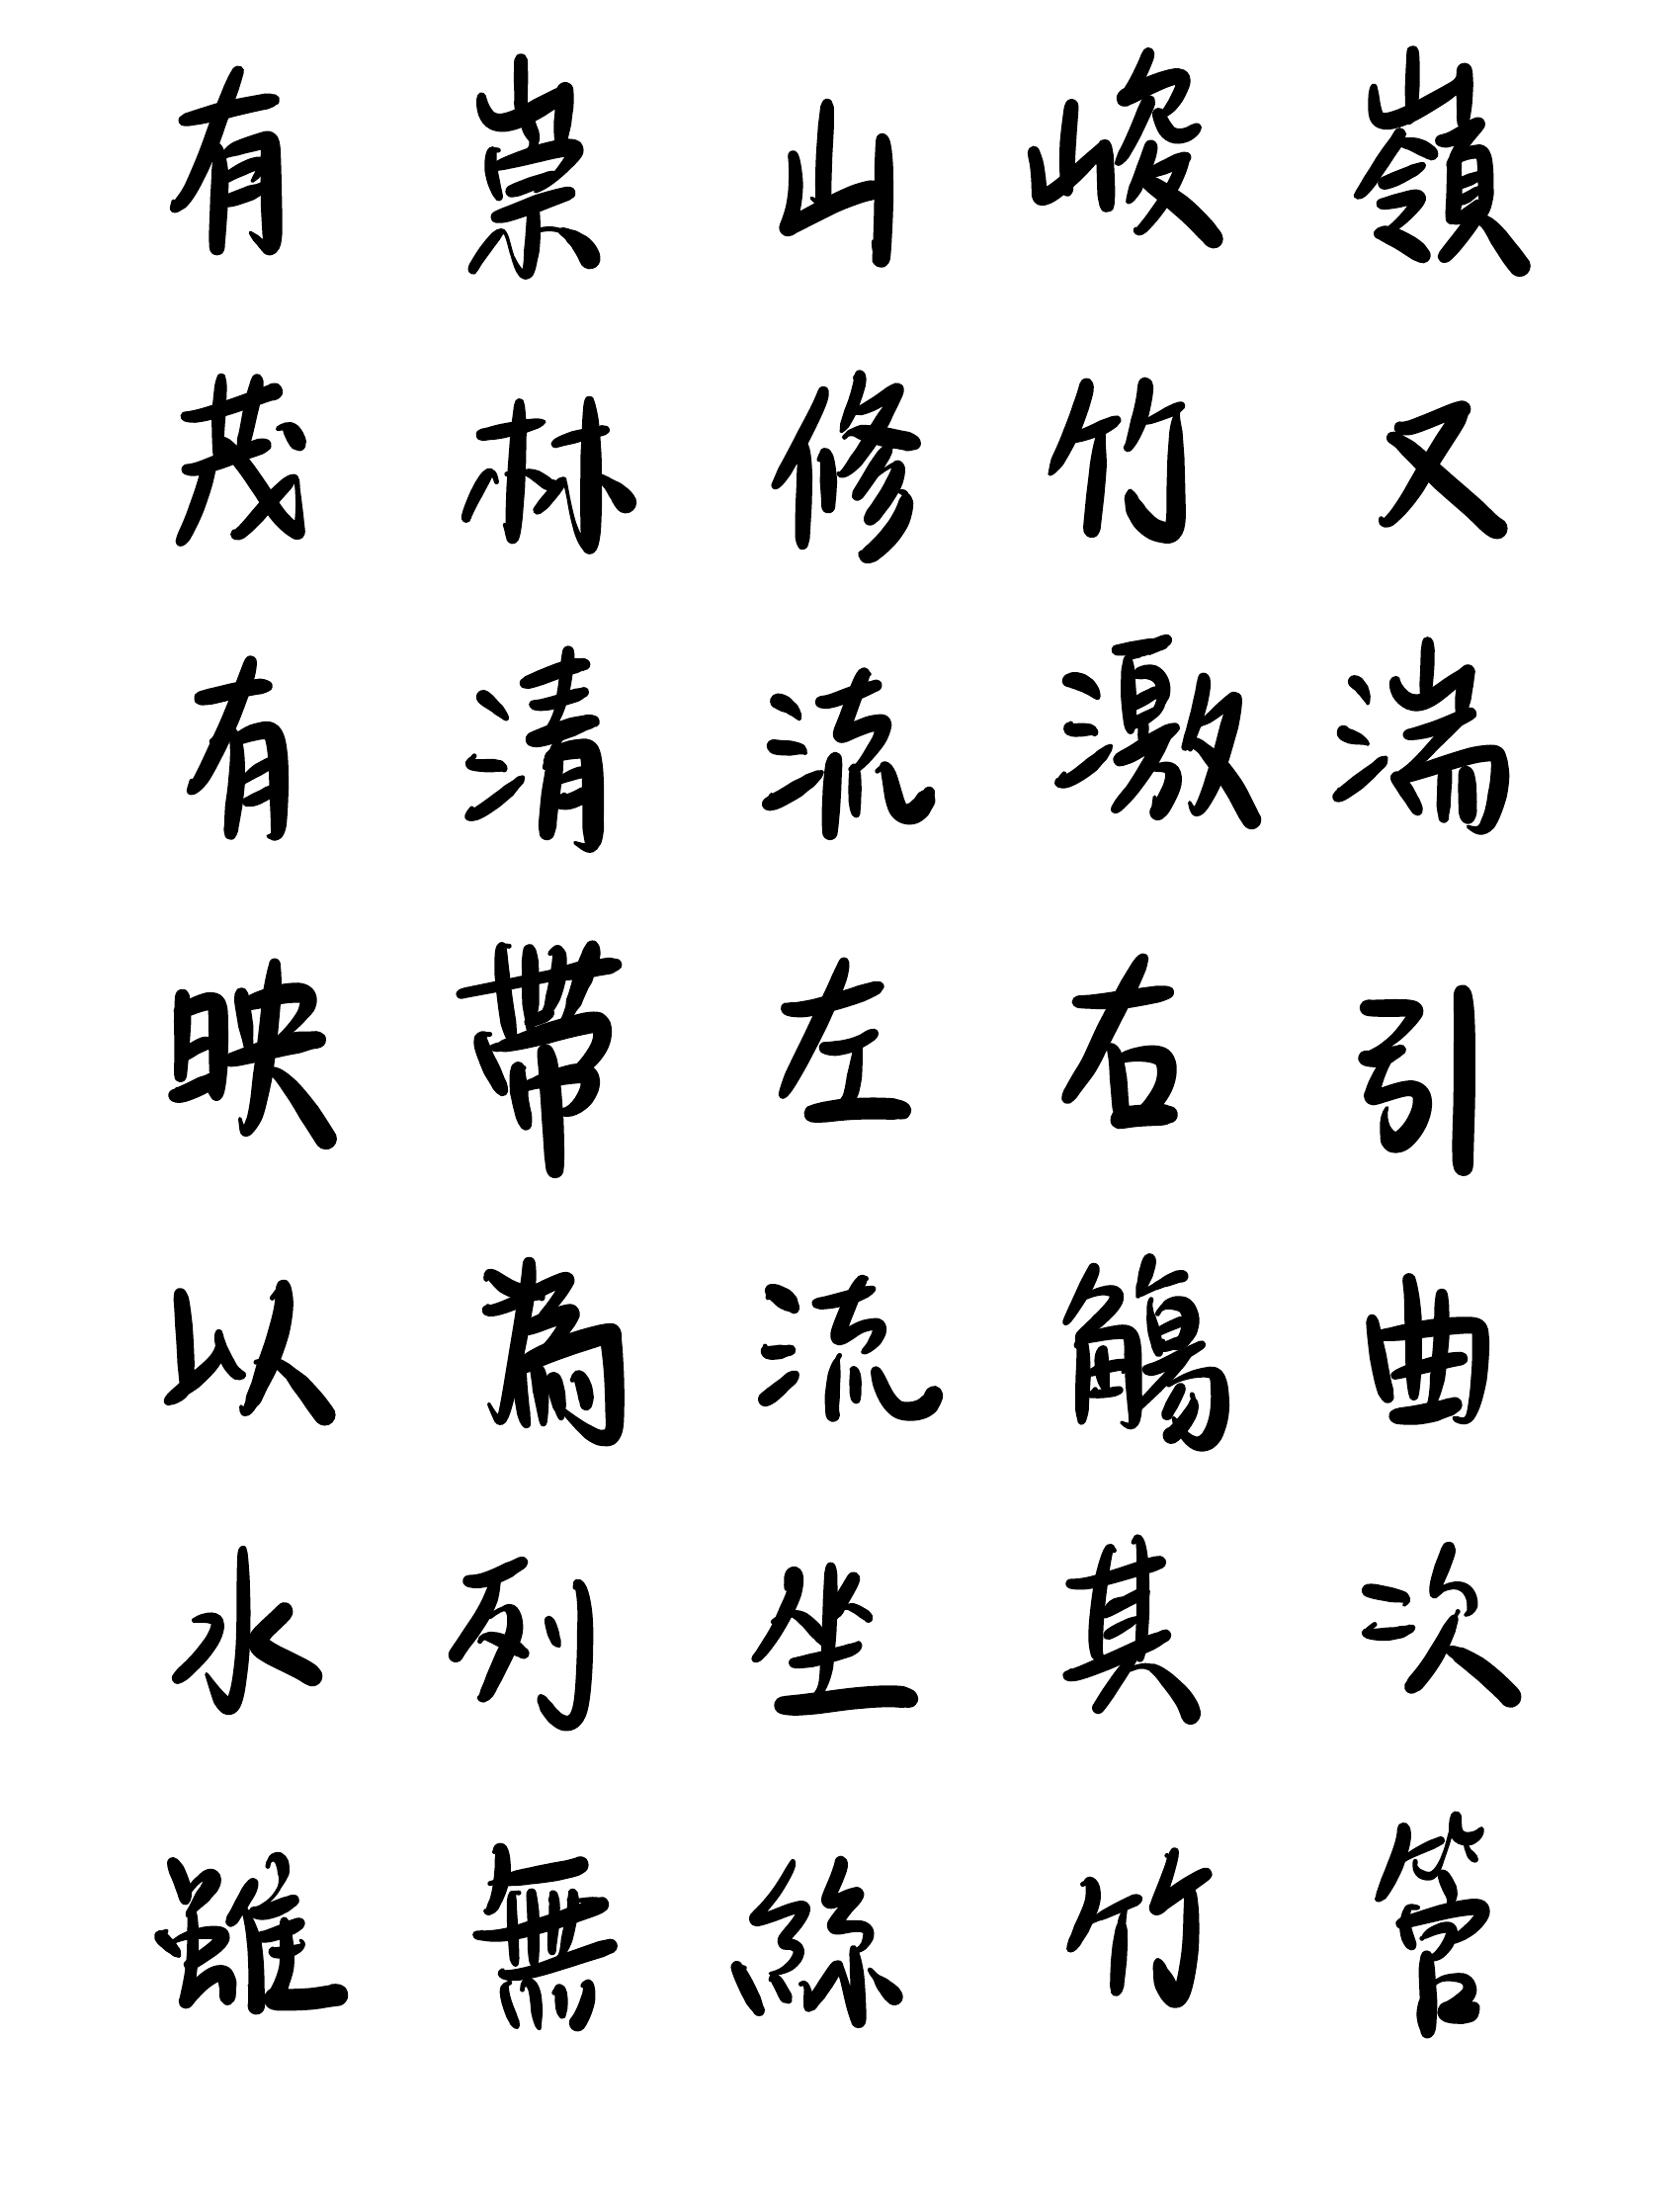 有崇山峻嶺
茂林修竹又
有清流激湍
映帶左右引
以為流觴曲
水列坐其次
雖無絲竹管